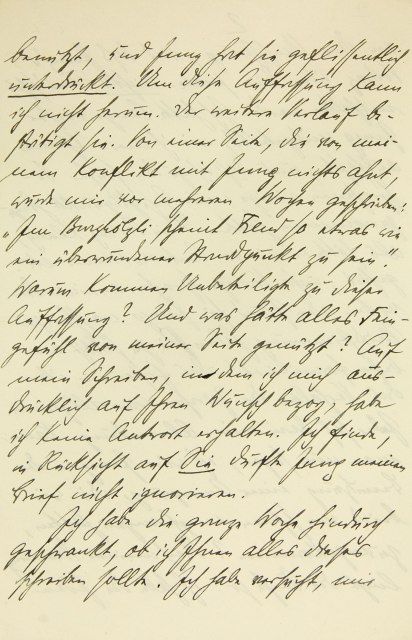 benützt, und Jung hat sie geflissentlich
unterdrückt. Um diese Auffassung kann
ich nicht herum. Der weitere Verlauf be-
stätigt sie. Von einer Seite, die von mei-
nem Konflikt mit Jung nichts ahnt,
wurde mir vor mehreren Wochen geschrieben:
„Im Burghölzli scheint Freud so etwas wie
ein überwundener Standpunkt zu sein“.
Warum kommen Unbeteiligte zu dieser
Auffassung? Und was hätte alles Fein-
gefühl von meiner Seite genützt? Auf
mein Schreiben, in dem ich mich aus-
drücklich auf Ihren Wunsch bezog, habe
ich keine Antwort erhalten. Ich finde,
in Rücksicht auf Sie durfte Jung meinen
Brief nicht ignorieren.
Ich habe die ganze Woche hindurch
geschwankt, ob ich Ihnen alles dieses
schreiben sollte. Ich habe versucht, mir